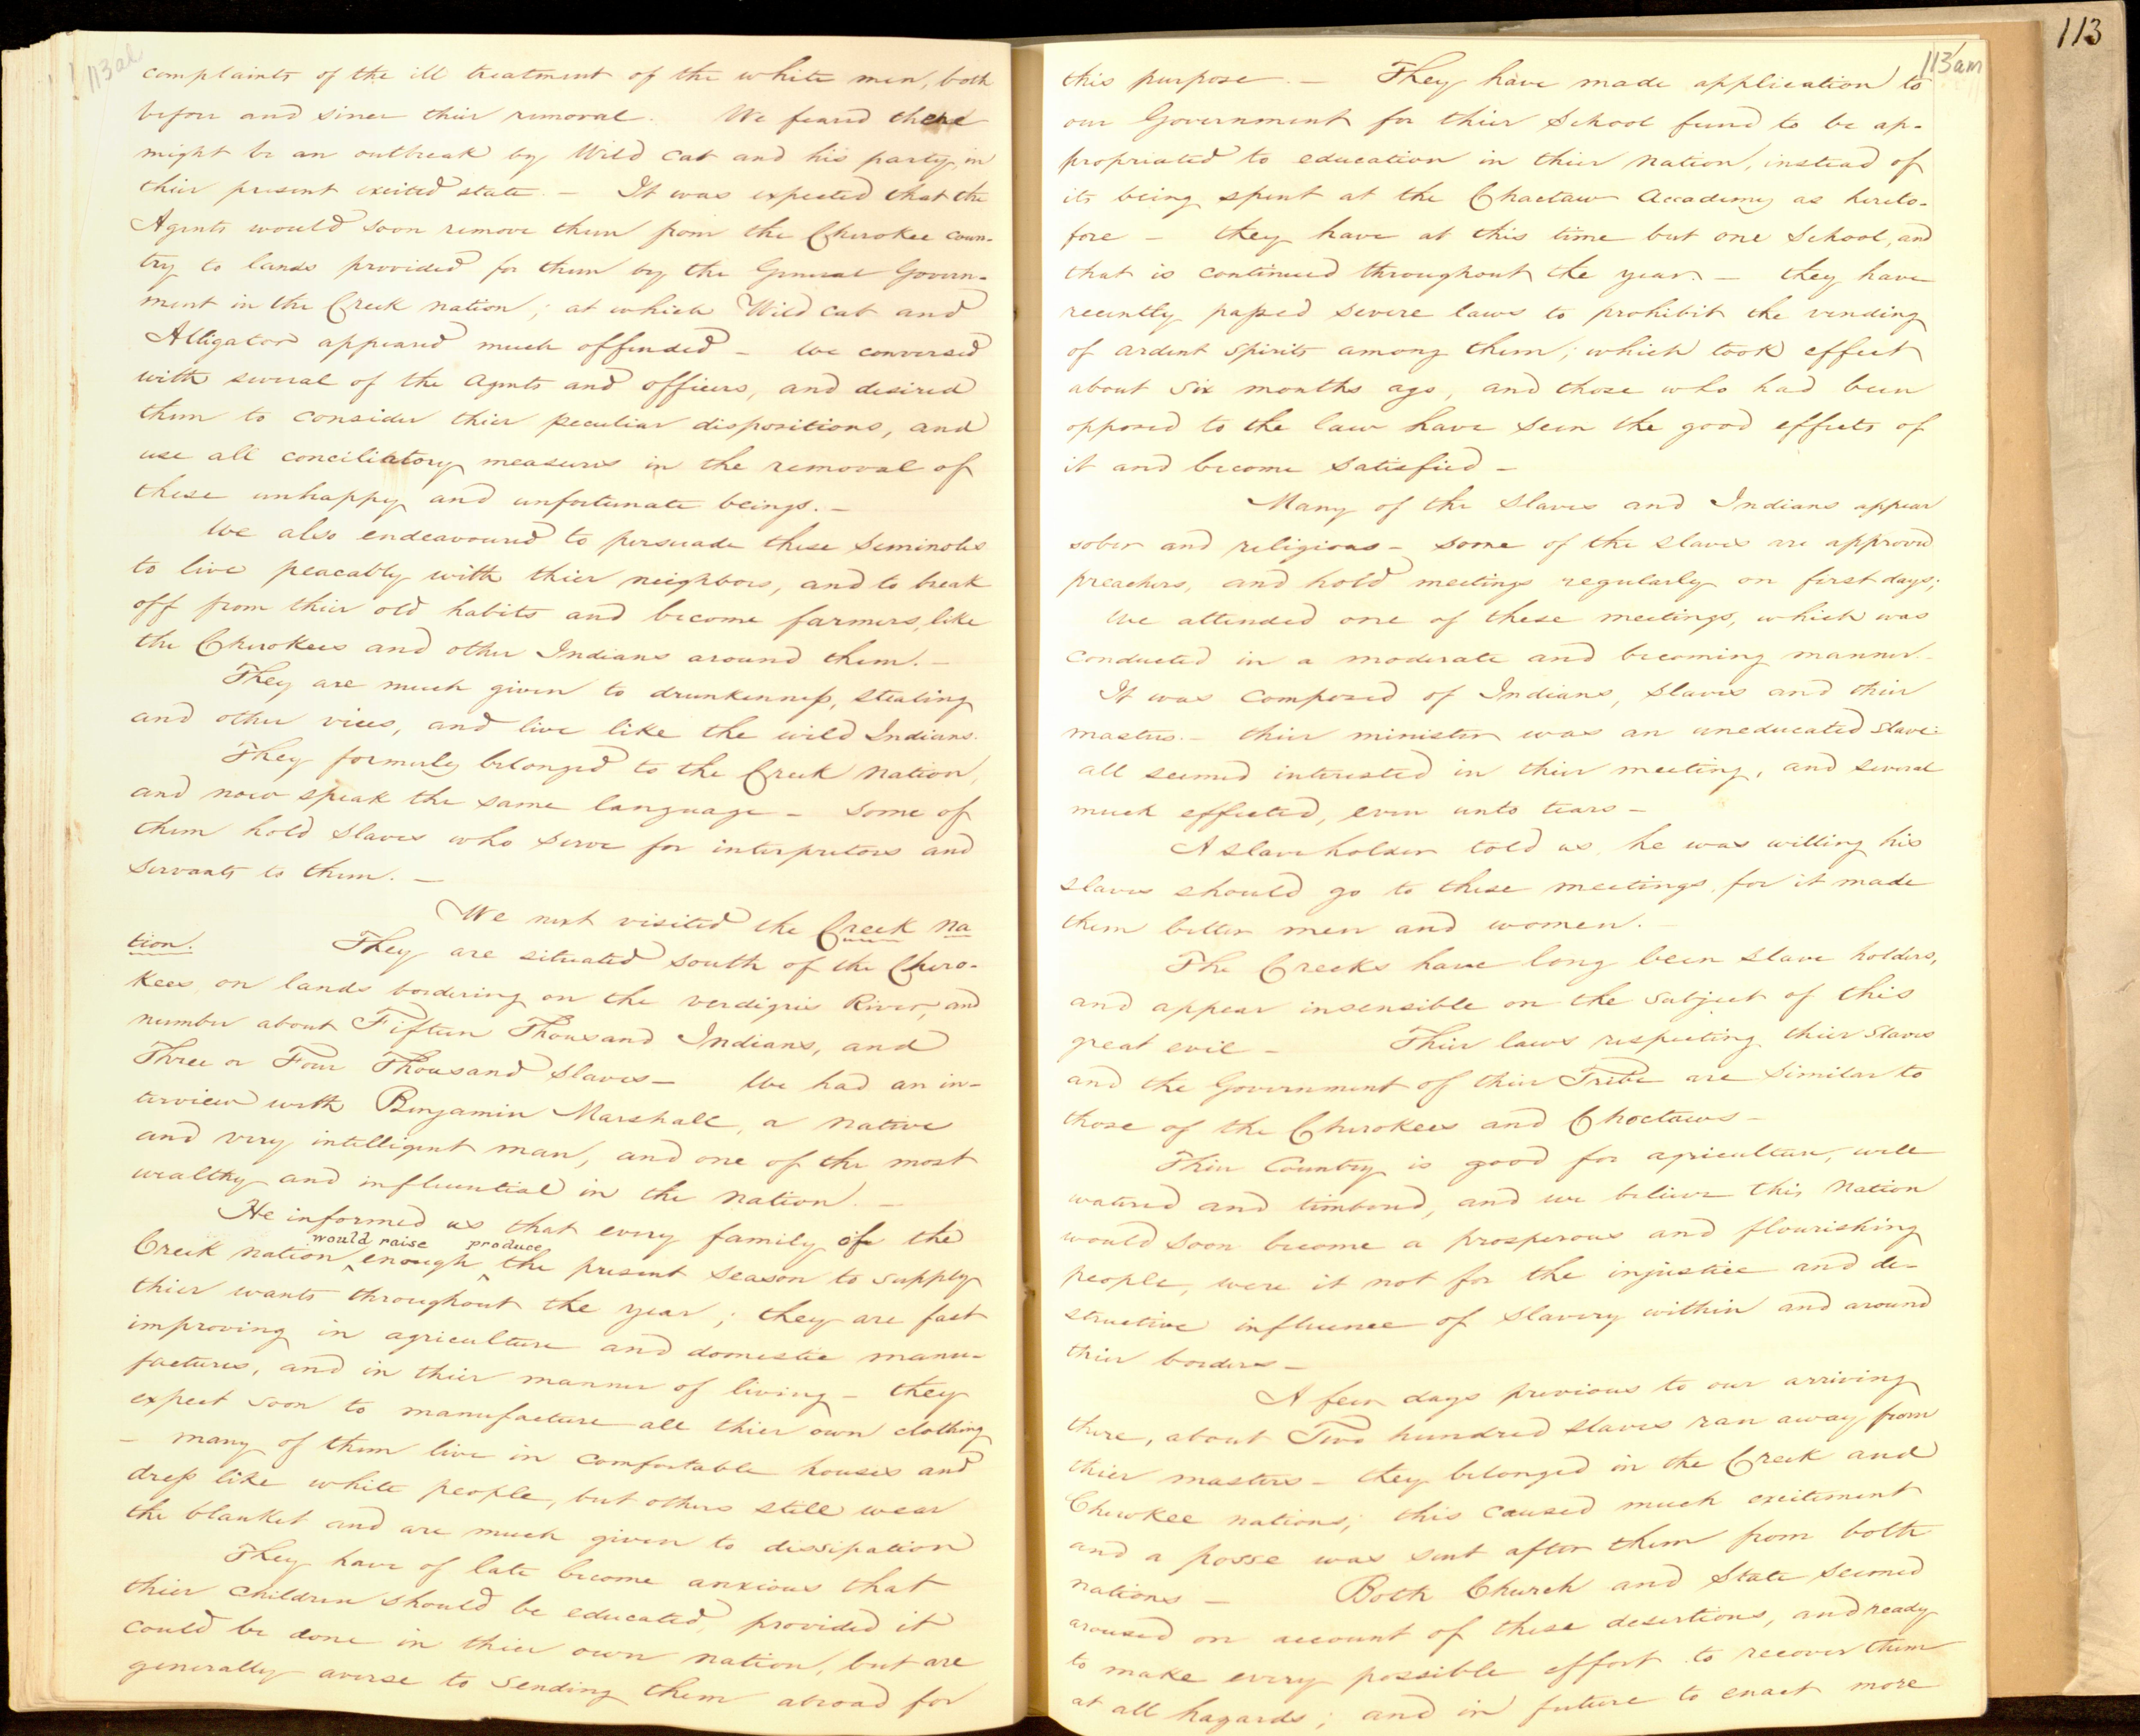 113al
complaints of the ill treatment of the white men, both
before and since thier removal. We feared there
might be an outbreak by Wild Cat and his party, in
thier present excited state. – It was expected that the
Agents would soon remove them from the Cherokee coun-
try to lands provided for them by the General Govern-
ment in the Creek nation; at which Wild Cat and
Alligator appeared much offended – We conversed
with several of the Agents and officers, and desired
them to consider thier peculiar dispositions, and
use all conciliatory measures in the removal of
these unhappy and unfortunate beings. –
We also endeavoured to persuade these Seminoles
to live peacably with thier neighbors, and to break
off from thier old habits and become farmers, like
the Cherokees and other Indians around them. –
They are much given to drunkenness, stealing
and other vices, and live like the wild Indians.
They formerly belonged to the Creek nation,
and now speak the same language – Some of
them hold slaves who serve for interpretors and
servants to them. –
We next visited the Creek Na
tion. They are situated south of the Chero-
kees, on lands bordering on the verdigris River, and
number about Fifteen Thousand Indians, and
Three or Four Thousand Slaves – We had an in-
terview with Benjamin Marshall, a native
and very intelligent man, and one of the most
wealthy and influential in the nation. –
He informed us that every family of the
would raise produce
Creek nation ^ enough ^ the present season to supply
thier wants throughout the year; they are fast
improving in agriculture and domestic manu-
factures, and in thier manner of living – they
expect soon to manufacture all thier own clothing
– many of them live in comfortable houses and
dress like white people, but others still wear
the blanket and are much given to dissipation
They have of late become anxious that
thier children should be educated, provided it
could be done in thier own nation, but are
generally averse to sending them abroad for
113
113am
this purpose. – They have made application to
our Government for thier School fund to be ap-
propriated to education in thier nation, instead of
its being spent at the Choctaw Accademy as hereto-
fore – they have at this time but one School, and
that is continued throughout the year. – they have
recently passed severe laws to prohibit the vending
of ardent spirits among them; which took effect
about six months ago, and those who had been
opposed to the law have seen the good effects of
it and become satisfied –
Many of the Slaves and Indians appear
sober and religious – some of the slaves are approved
preachers, and hold meetings regularly on first days;
We attended one of these meetings, which was
conducted in a moderate and becoming manner –
It was composed of Indians, slaves and thier
masters. – thier minister was an uneducated Slave:
all seemed interested in thier meeting, and several
much effected, even unto tears –
A slaveholder told us, he was willing his
slaves should go to these meetings, for it made
them better men and women. –
The Creeks have long been slave holders,
and appear insensible on the subject of this
great evil – Thier laws respecting thier Slaves
and the Government of thier Tribe are similar to
those of the Cherokees and Choctaws –
Thier Country is good for agriculture, well
watered and timbered, and we believe this Nation
would soon become a prosperous and flourishing
people, were it not for the injustice and de-
structive influence of Slavery within and around
thier borders –
A few days previous to our arriving
there, about Two hundred slaves ran away from
thier masters – they belonged in the Creek and
Cherokee nations; this caused much excitement
and a posse was sent after them from both
nations – Both Church and State seemed
aroused on account of these desertions, and ready
to make every possible effort to recover them
at all hazards; and in future to enact more